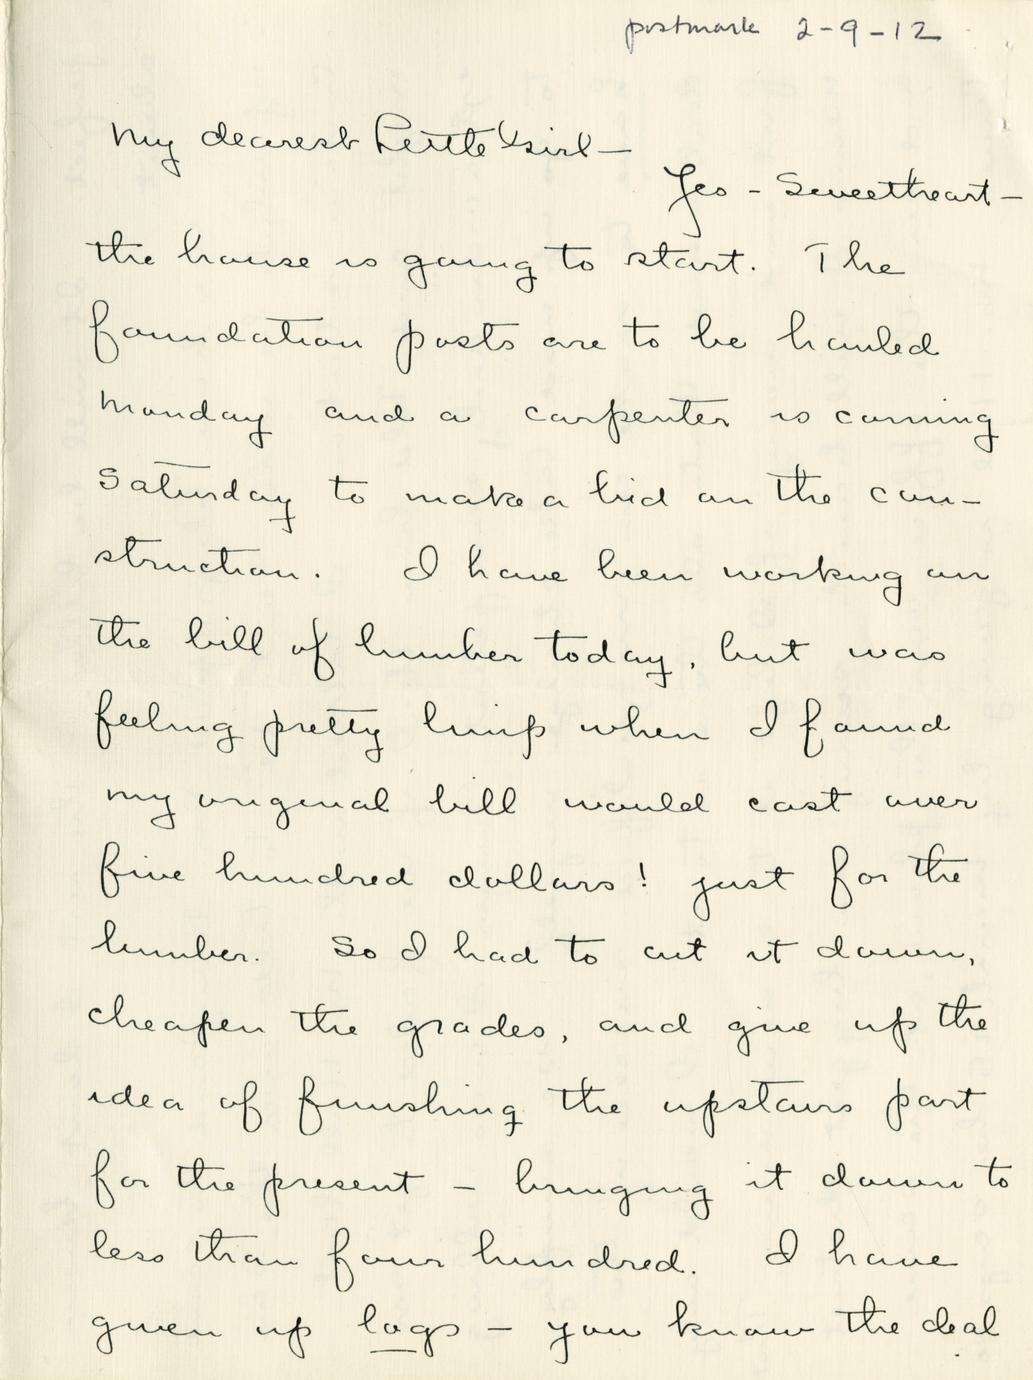 postmark 2-9-12
My dearest Little Girl—
Yes - Sweetheart—
the house is going to start. The
foundation posts are to be hauled
Monday and a carpenter is coming
Saturday to make a bid on the con-
struction. I have been working on
the bill of lumber today, but was
feeling pretty limp when I found
my original bill would cost over
five hundred dollars! just for the
lumber. So I had to cut it down,
cheapen the grades, and give up the
idea of finishing the upstairs part
for the present — bringing it down to
less than four hundred. I have
given up logs — you know the deal